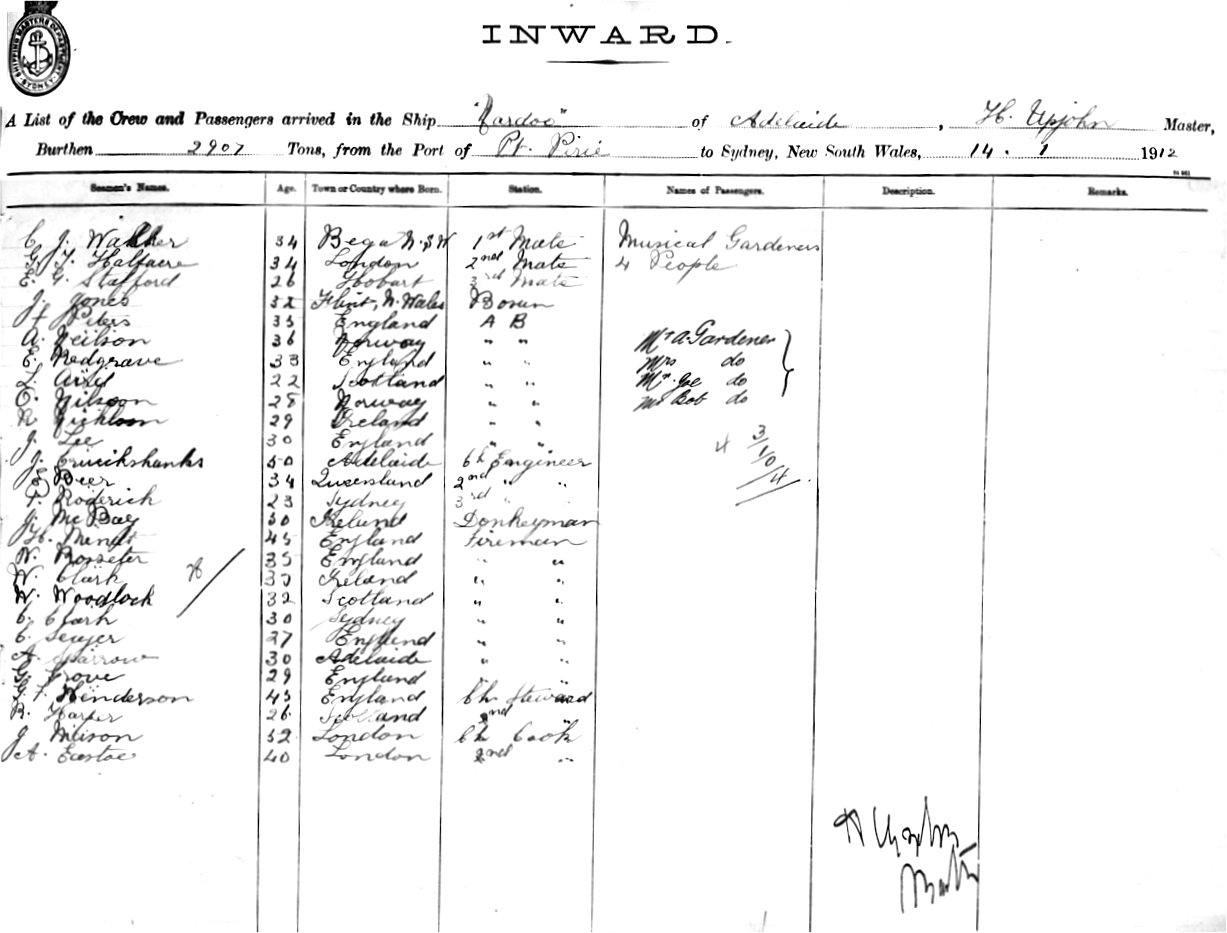 SHIPPING MASTERS DEPARTMENT SYDNEY
INWARD.
A List of the Crew and Passengers arrived in the Ship "Nardoo" of Adelaide, H. Upjohn Master,
Burthen 2907 Tons, from the Port of Pt. Pirie to Sydney, New South Wales, 14. 1 1912
Seamen's Names. Age. Town or Country where Born. Station. Names of Passengers. Description. Remarks.
C. J. Walker 34 Bega N.S.W 1st Mate Musical Gardeners
Halfacre 34 London 2nd Mate 4 People
E. G. Stafford 26 Hobart 3rd Mate
J. Jones 32 Flint, N. Wales Bosun
Peters 35 England A B
A. Neilson 36 Norway " " Mr A. Gardener
E. Redgrave 33 England " " Mrs do
22 Scotland " " Mr. Joe do
Nilsson 28 Norway " " Mr Bob do
R 29 Ireland " "
J. Lee 30 England " "
4 3/10/4
J. Cruickshanks 50 Adelaide Ch Engineer
Beer 34 Queensland 2nd " "
Roderick 23 Sydney 3rd " "
J. McBay 30 Ireland Donkeyman
H. 45 England Fireman
W. Rosseter 35 England " "
W. Clark Ireland " "
W. Woodlock 32 Scotland " "
C. Clark 30 Sydney " "
C. 27 England " "
A. Sparrow 30 Adelaide " "
Grove 29 England " "
F. Henderson 45 England Ch Steward
R. Harper 26 Scotland 2nd "
J. London Ch Cook
A. Eastoe 40 London 2nd "
H Upjohn
Master